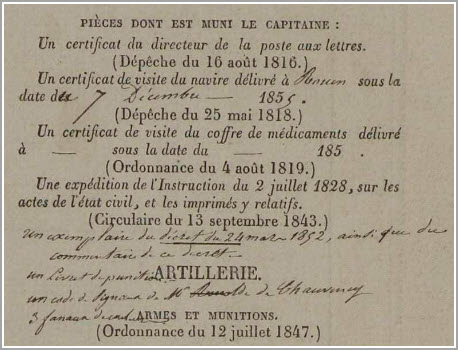 PIÈCES DONT EST MUNI LE CAPITAINE :
Un certificat du directeur de la poste aux lettres.
(Dépêche du 16 août 1816.)
Un certificat de visite du navire délivré à Rouen sous la
date du 7 Décembre — 1855.
(Dépêche du 25 mai 1818.)
Un certificat de visite du coffre de médicaments délivré
à — sous la date du — 185 .
(Ordonnance du 4 août 1819.)
Une expédition de l'Instruction du 2 juillet 1828, sur les
actes de l'état civil, et les imprimés y relatifs.
(Circulaire du 13 septembre 1843.)
un exemplaire du décret du 24 mars 1852, ainsi que du
commentaire de ce décret
un livret de punitions
ARTILLERIE.
un code de signaux de Mr de Chauvency
3 fanaux de
ARMES ET MUNITIONS.
(Ordonnance du 12 juillet 1847.)